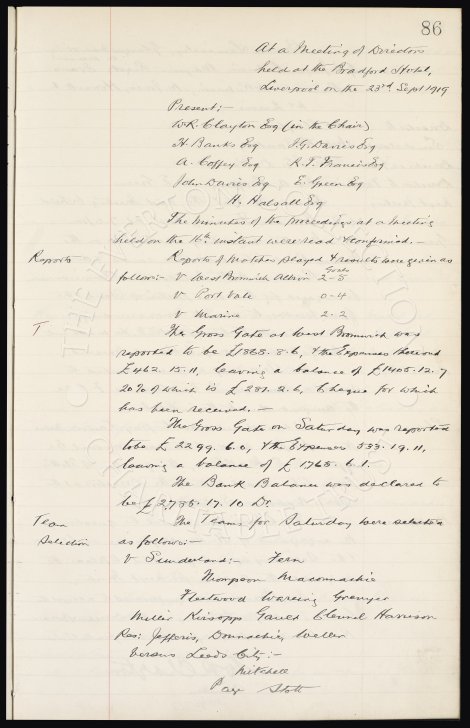 86
At a Meeting of Directors
held at the Bradford Hotel,
Liverpool on the 23rd Sept 1919
Present:-
W.R. Clayton Esq (in the Chair)
H. Banks Esq J.G. Davies Esq
A. Coffey Esq R.T. Francis Esq
John Davies Esq E. Green Esq
H. Halsall Esq
The minutes of the proceedings at a meeting
held on the 16th instant were read & confirmed.-
Reports Reports of matches played & results were given as
Goals
follow:- v West Bromwich Albion 2-5
v Port Vale 0-4
v Marine 2-2
T The Gross Gate at West Bromwich was
reported to be £1868.8.6, & the Expenses thereond
£462.15.11, leaving a balance of £1405.12.7
20% of which is £281.2.6, Cheque for which
has been received.-
The Gross Gate on Saturday was reported
to be £2299.6.0, & the Expenses 533.19.11,
leaving a balance of £1765.6.1.
The Bank Balance was declared to
be £2735.17.10 Dr
Team The Teams for Saturday were selected
Selection as follows:-
v Sunderland:- Fern
Thompson Maconnachie
Fleetwood Wareing Grenyer
Miller Kirsopps Gauld Clennel Harrison
Res: Jefferis, Donnachie, Weller
Versus Leeds City:-
Mitchell
Page Stott